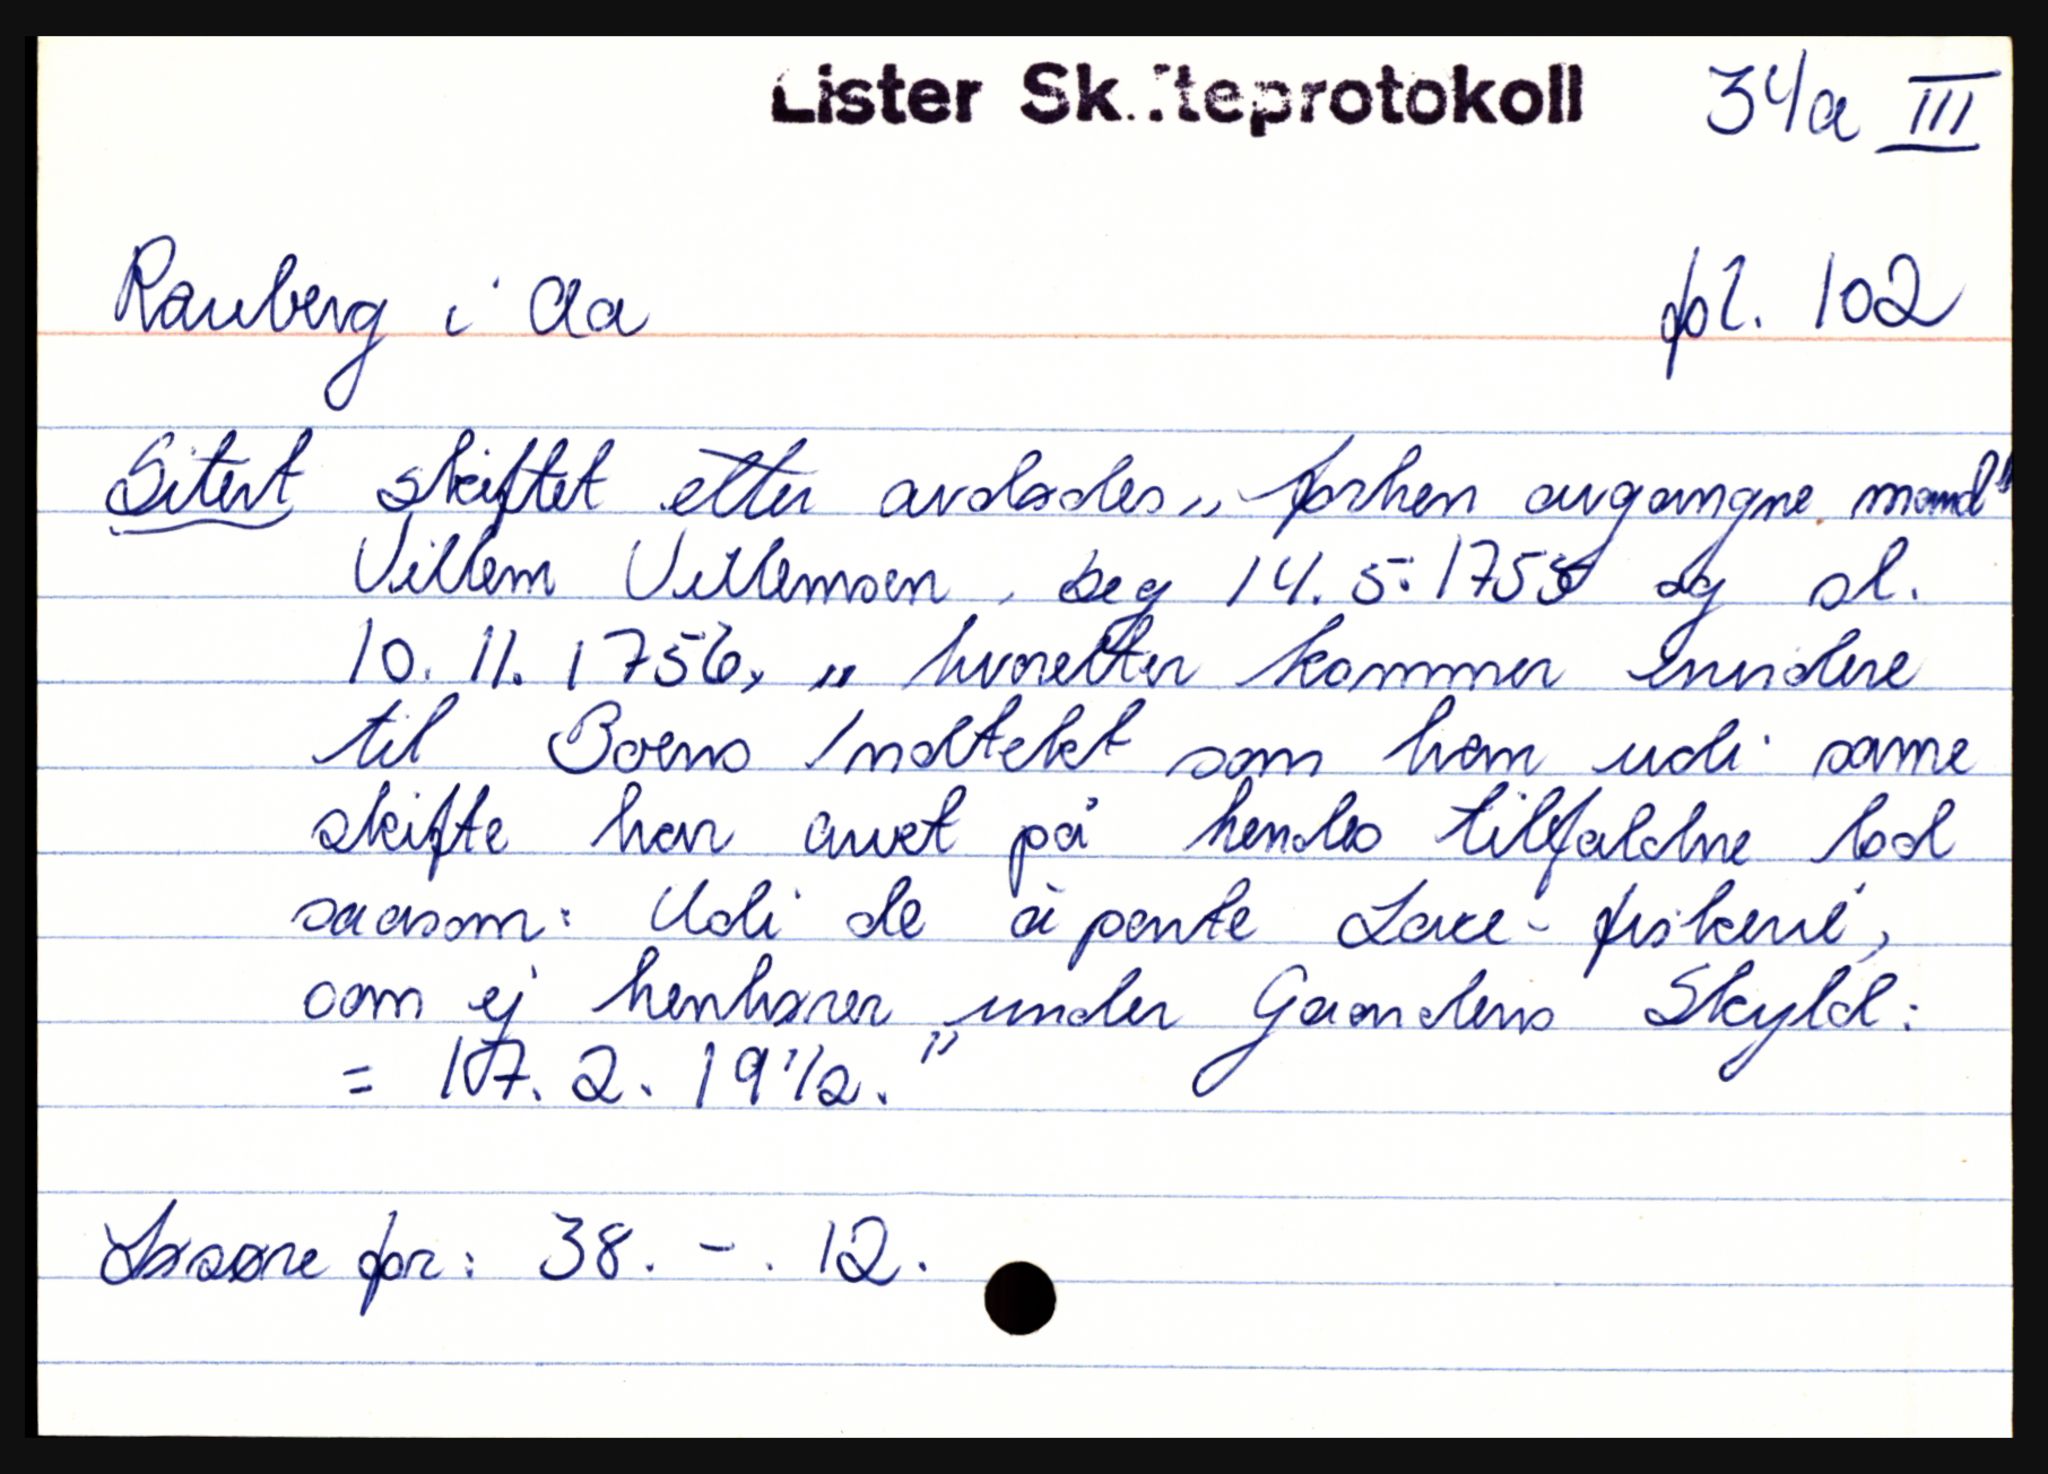 Lister Skifteprotokoll 34a III
Rauberg i Aa fol. 102
Sitert skiftet etter avdødes „ forhen avgangne mand"
Villem Villemsen, beg 14.5.1755 og sl.
10. 11. 1756, „ hvoretter kommer enndere
til Boens Indtekt som hen udi same
skifte har arvet på hendes tilfaldne lod
saasom: Udi de à parte Laxe-fiskerié,
som ej henhører under Gaardens Skyld:
= 107. 2. 19 1/2."
Løsøre for: 38. -. 12.